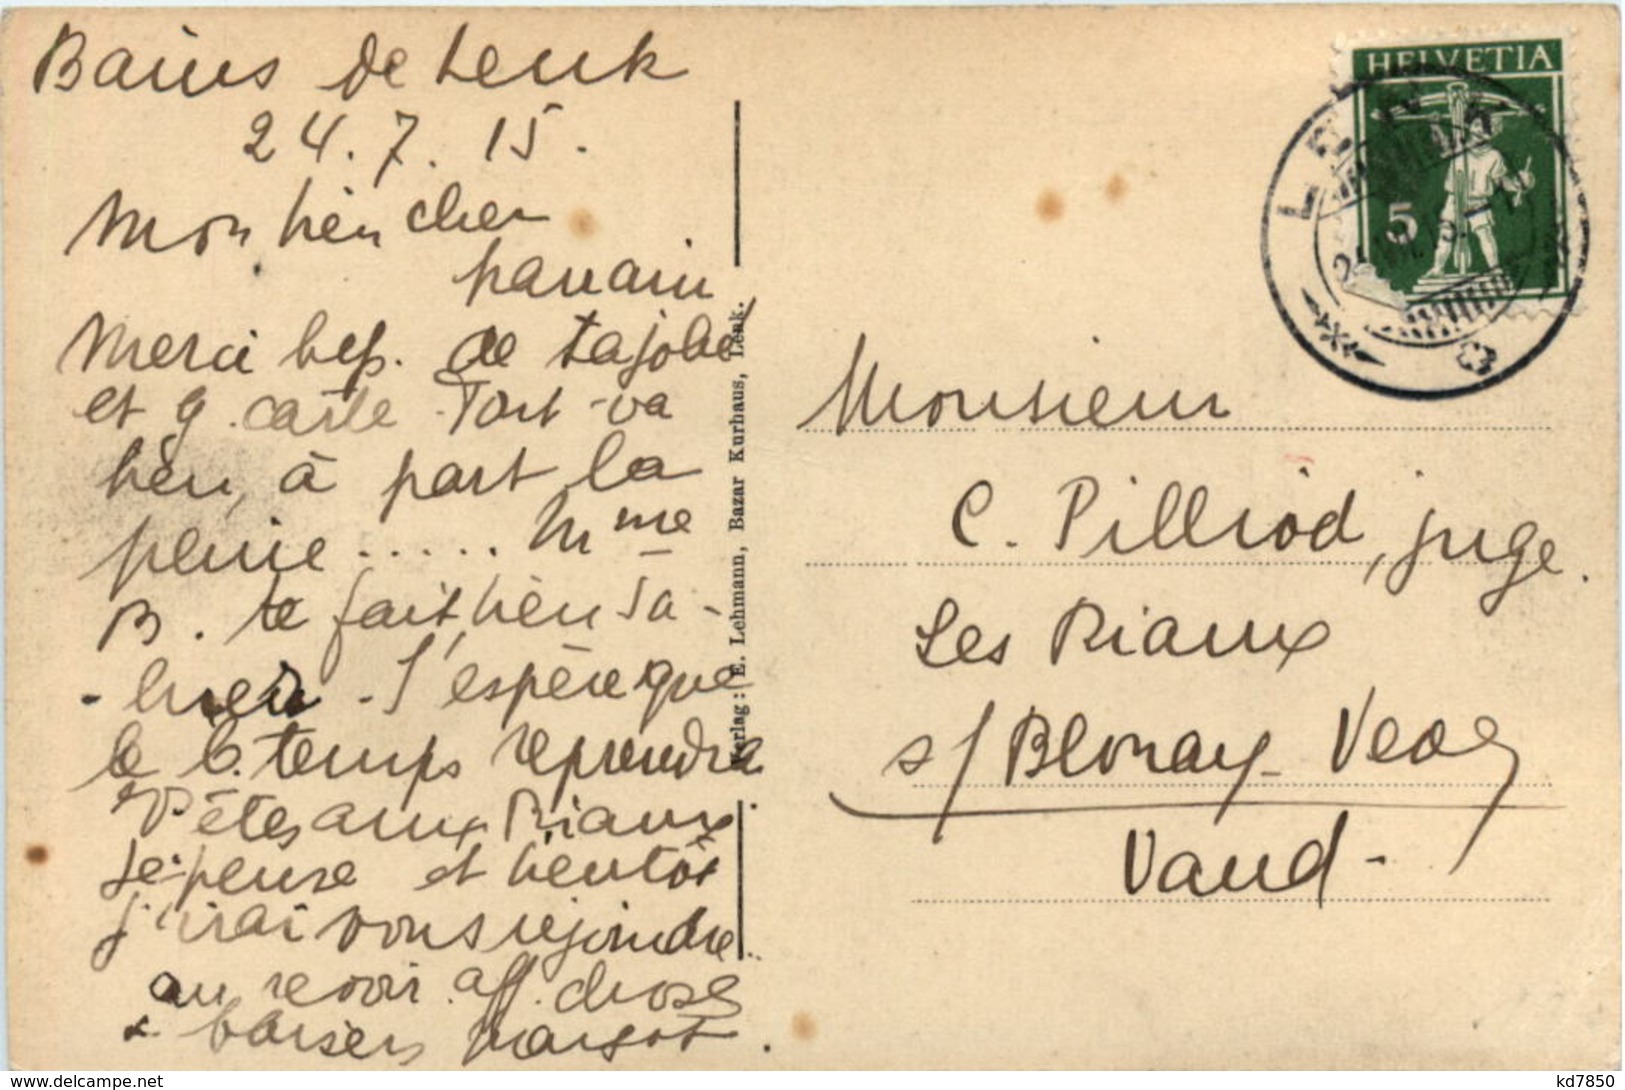 Bains de Leuk
24.7.15.
Mon bien cher
parrain
Merci bcp. de ta jolie
et g. carte. Tout va
bien, à part la
pluie..... Mme
B. te fait bien sa-
-luer. J'espère que
le b. temps reprendra
Vs êtes aux Riaux
je pense et bientôt
j'irai vous rejoindre.
au revoir aff. choses
& baisers Margot.
Verlag: E. Lehmann, Bazar Kurhaus, Lenk.
HELVETIA
5
Monsieur
C. Pilliod, juge.
Les Riaux
s/ Blonay Vevey
Vaud-
www.delcampe.net
kd7850